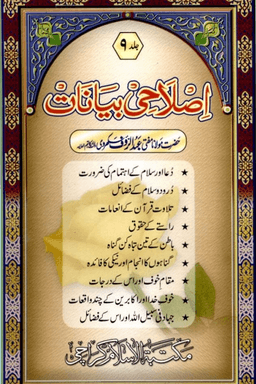 جلد ۹
اصلاحی بیانات
حضرت مولانا مفتی عبدالرؤف سکھروی
دعا اور سلام کے اہتمام کی ضرورت
درود و سلام کے فضائل
تلاوت قرآن کے انعامات
راستے کے حقوق
باطن کے تین تباہ کن گناہ
گناہوں کا انجام اور نیکی کا فائدہ
مقام خوف اور اس کے درجات
خوف خدا اور اکابرین کے چند واقعات
جہاد فی سبیل اللہ اور اس کے فضائل
مکتبۃ الاسلام کراچی